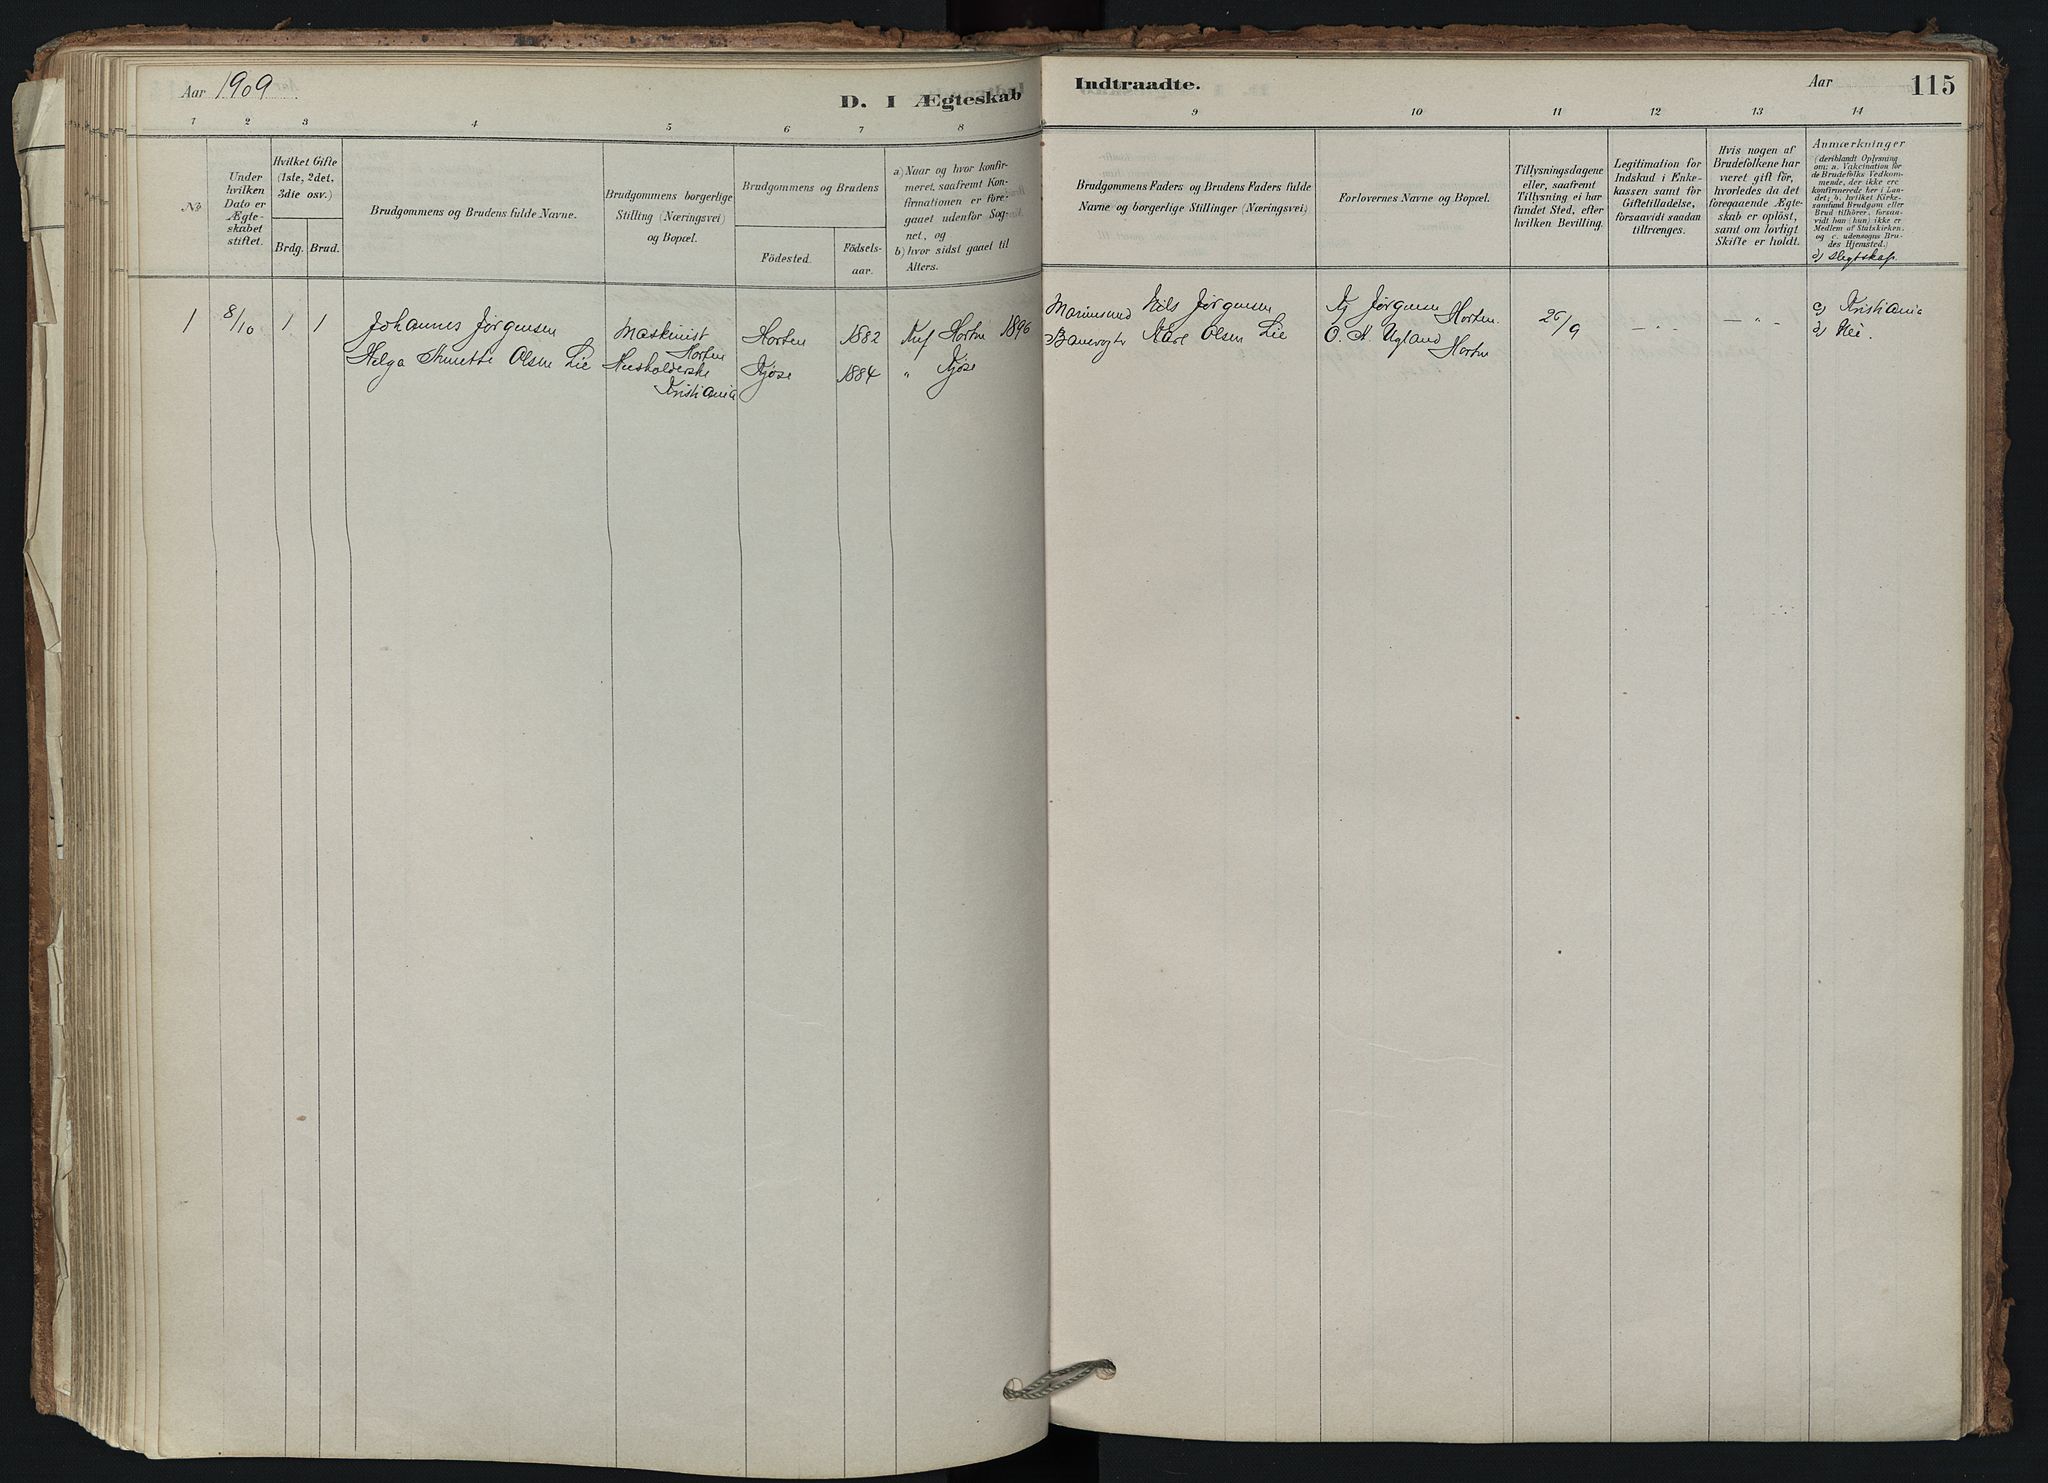 Aar 1909
D. I Ægteskab
Indtraadte.
Aar
115
1 2 3 4 5 6 7 8 9 10 11 12 13 14
No
Under
hvilken
Dato er
Ægte-
skabet
stiftet.
Hvilket Gifte
(1ste, 2det,
3die osv.)
Brdg. Brud.
Brudgommens og Brudens fulde Navne.
Brudgommens borgerlige
Stilling (Næringsvei)
og Bopæl.
Brudgommens og Brudens
Födested.
Födsels-
aar.
a) Naar og hvor konfir-
meret, saafremt Kon-
firmationen er fore-
gaaet udenfor Sog-
net, og
b) hvor sidst gaaet til
Alters.
Brudgommens Faders og Brudens Faders fulde
Navne og borgerlige Stillinger (Næringsvei)
Forlovernes Navne og Bopæl.
Tillysningsdagene
eller, saafremt
Tillysning ei har
fundet Sted, efter
hvilken Bevilling.
Legitimation for
Indskud i Enke-
kassen samt for
Giftetilladelse,
forsaavidt saadan
tiltrænges.
Hvis nogen af
Brudefolkene har
været gift för,
hvorledes da det
foregaaende Ægte-
skab er oplöst,
samt om lovligt
Skifte er holdt.
Anmærkninger
(deriblandt Oplysning
om: a. Vakcination for
de Brudefolks Vedkom-
mende, der ikke ere
konfirmerede her i Lan-
det; b. hvilket Kirke-
samfund Brudgom eller
Brud tilhörer, forsaa-
vidt han (hun) ikke er
Medlem af Statskirken,
og c. udensogns Bru-
des Hjemsted.)
d) Slegtskap
1 8/10 1 1 Johannes Jørgensen Maskinist Horten 1882 Knf Horten 1896 Marinesund Nils Jørgensen Kj Jørgensen Horten. 26/9 — „ — — „ — c) Kristiania
Horten
Helga Annette Olsen Lie Husholderske Kjose 1884 „ Kjose Banevogter Karl Olsen Lie O. A. Ugland Horten d) Nei.
Kristiania